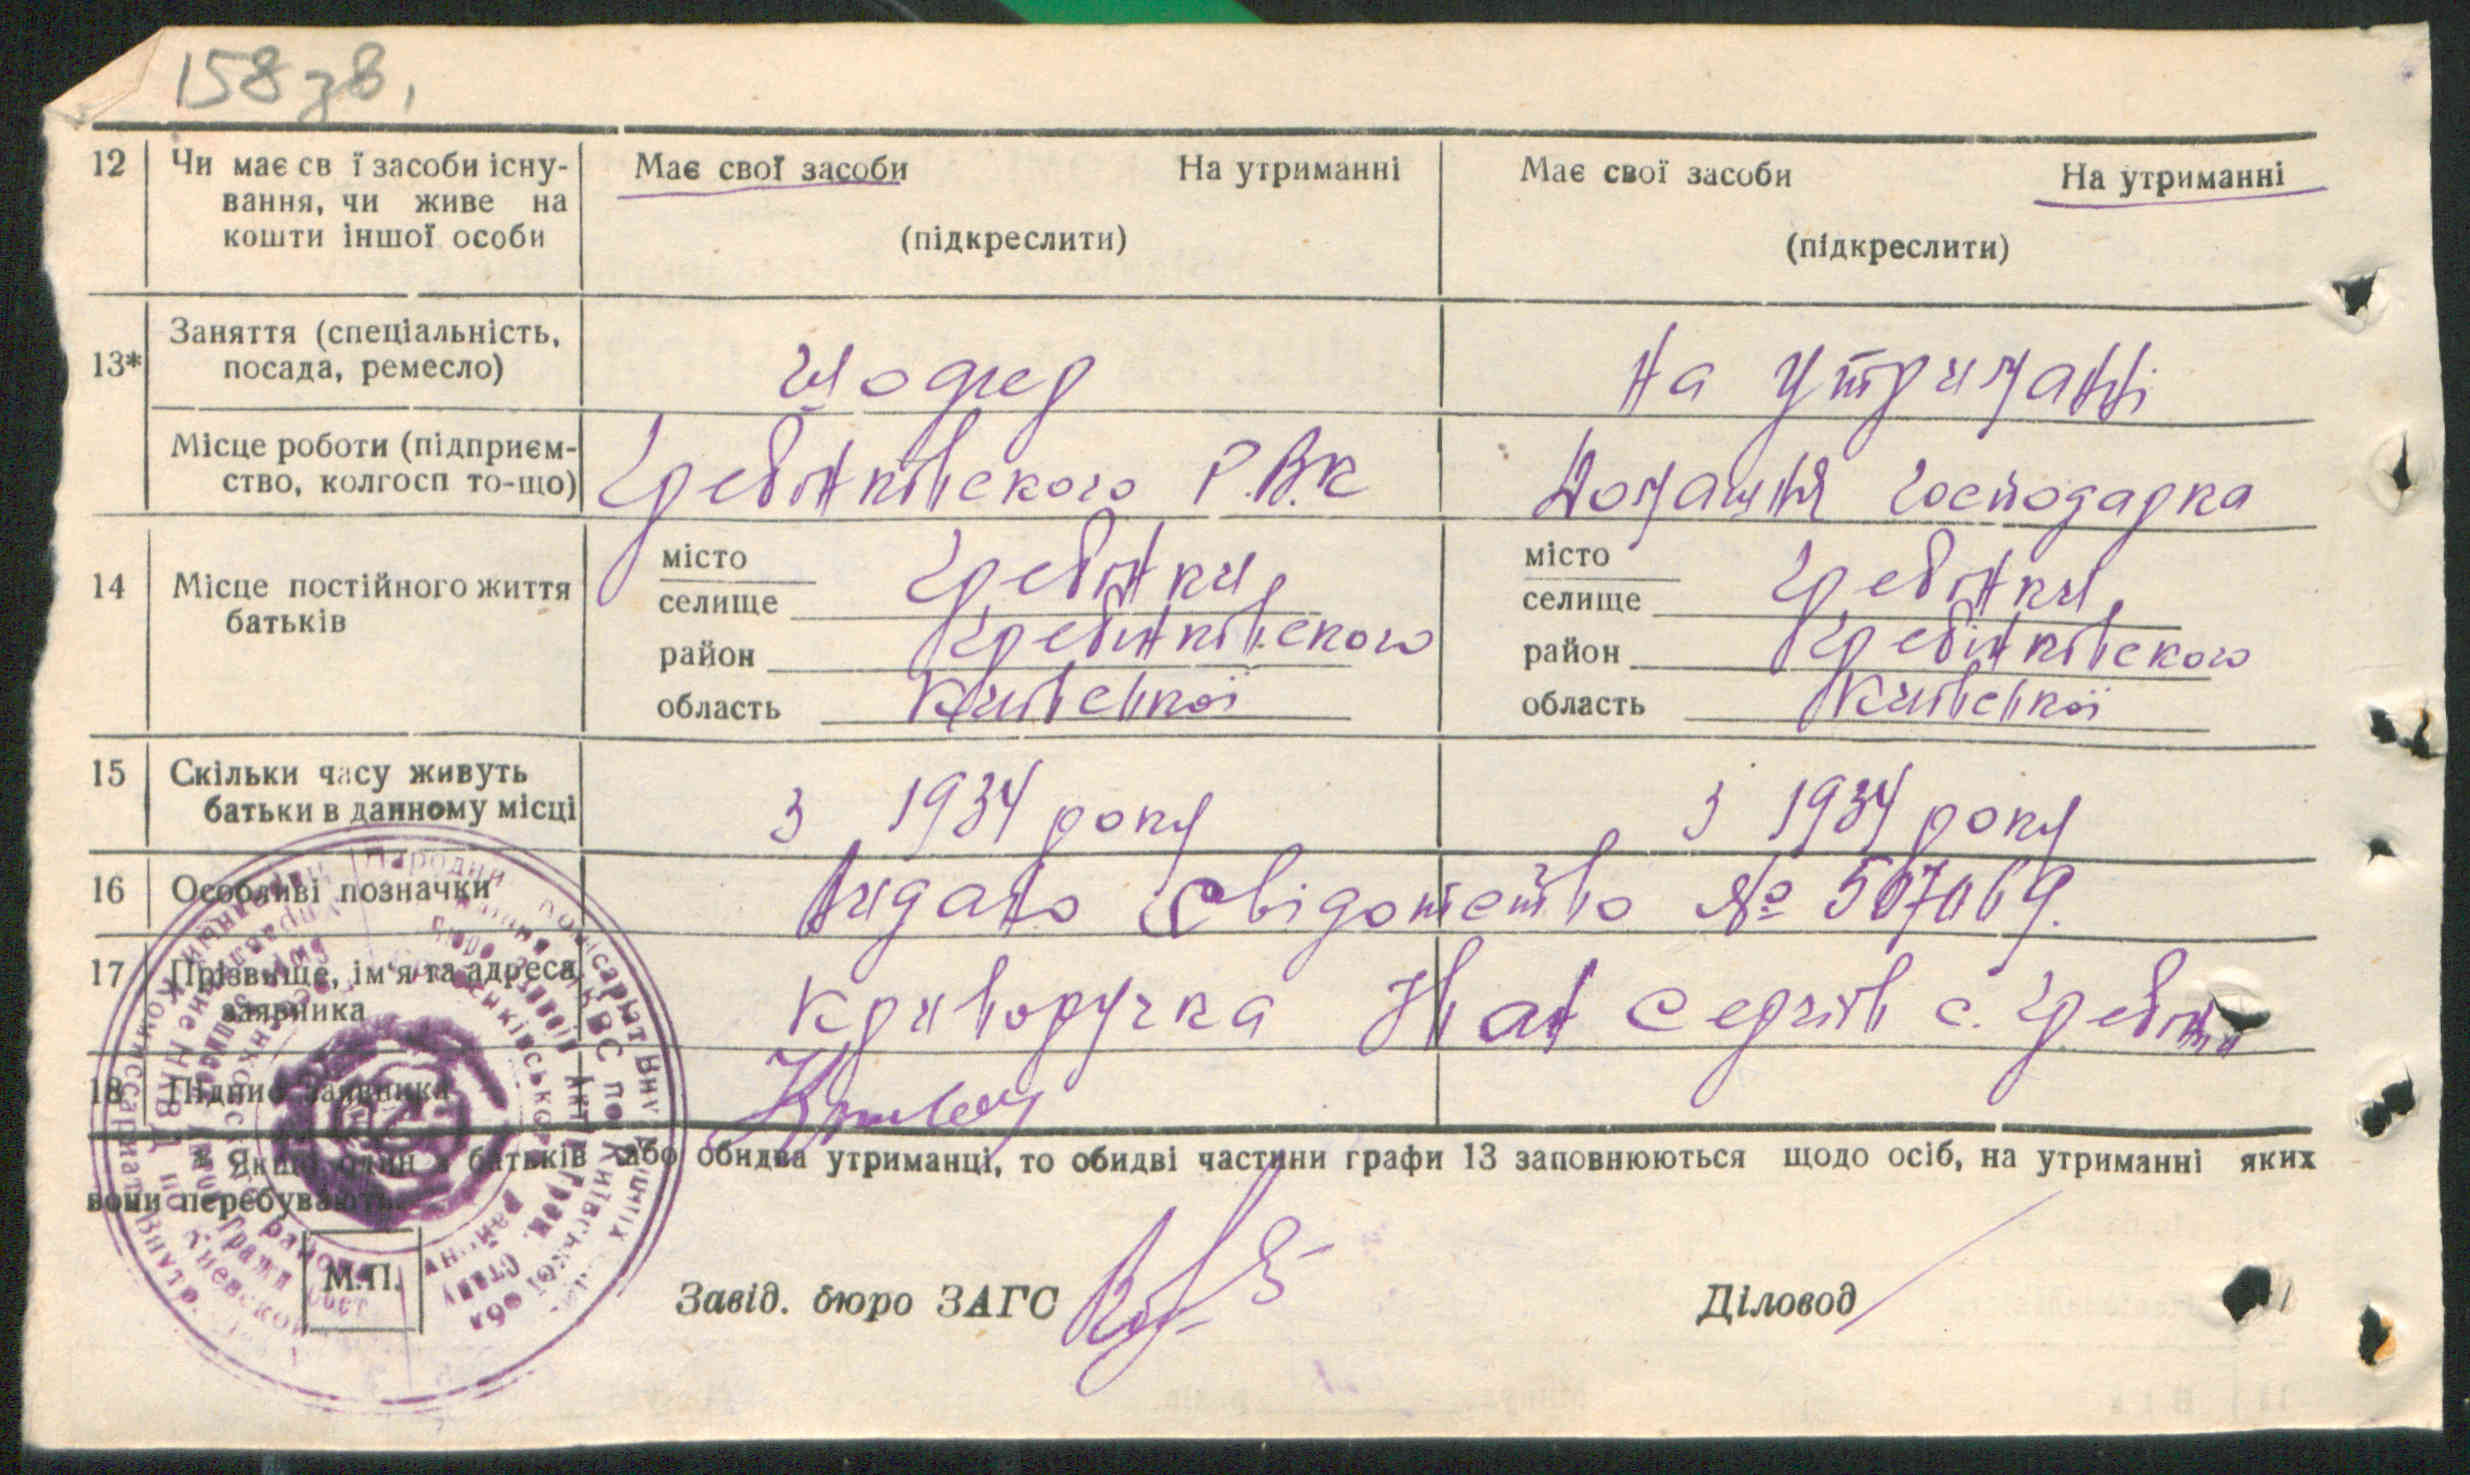 158 зв.
12 Чи має св ї засоби існу- Має свої засоби На утриманні Має свої засоби На утриманні
вання, чи живе на
кошти іншої особи (підкреслити) (підкреслити)
Заняття (спеціальність,
13* посада, ремесло) Шофер На утриманні
Місце роботи (підприєм- Гребінківского Р.В.К Домашня господарка
ство, колгосп то-що)
місто Гребінки, місто Гребінки,
14 Місце постійного життя селище селище
батьків район Гребінківского район Гребінківского
область Київської область Київської
15 Скільки часу живуть
батьки в данному місці з 1934 року з 1934 року
16 Особливі позначки Видано Свідотство № 507069.
17 Прізвище, ім'я та адреса Криворучка Іван Сергіїв с. Гребінки
заявника
18 Підпис заявника
* Якщо один з батьків або обидва утриманці, то обидві частини графи 13 заповнюються щодо осіб, на утриманні яких
вони перебувають.
М.П. Завід. бюро ЗАГС Діловод